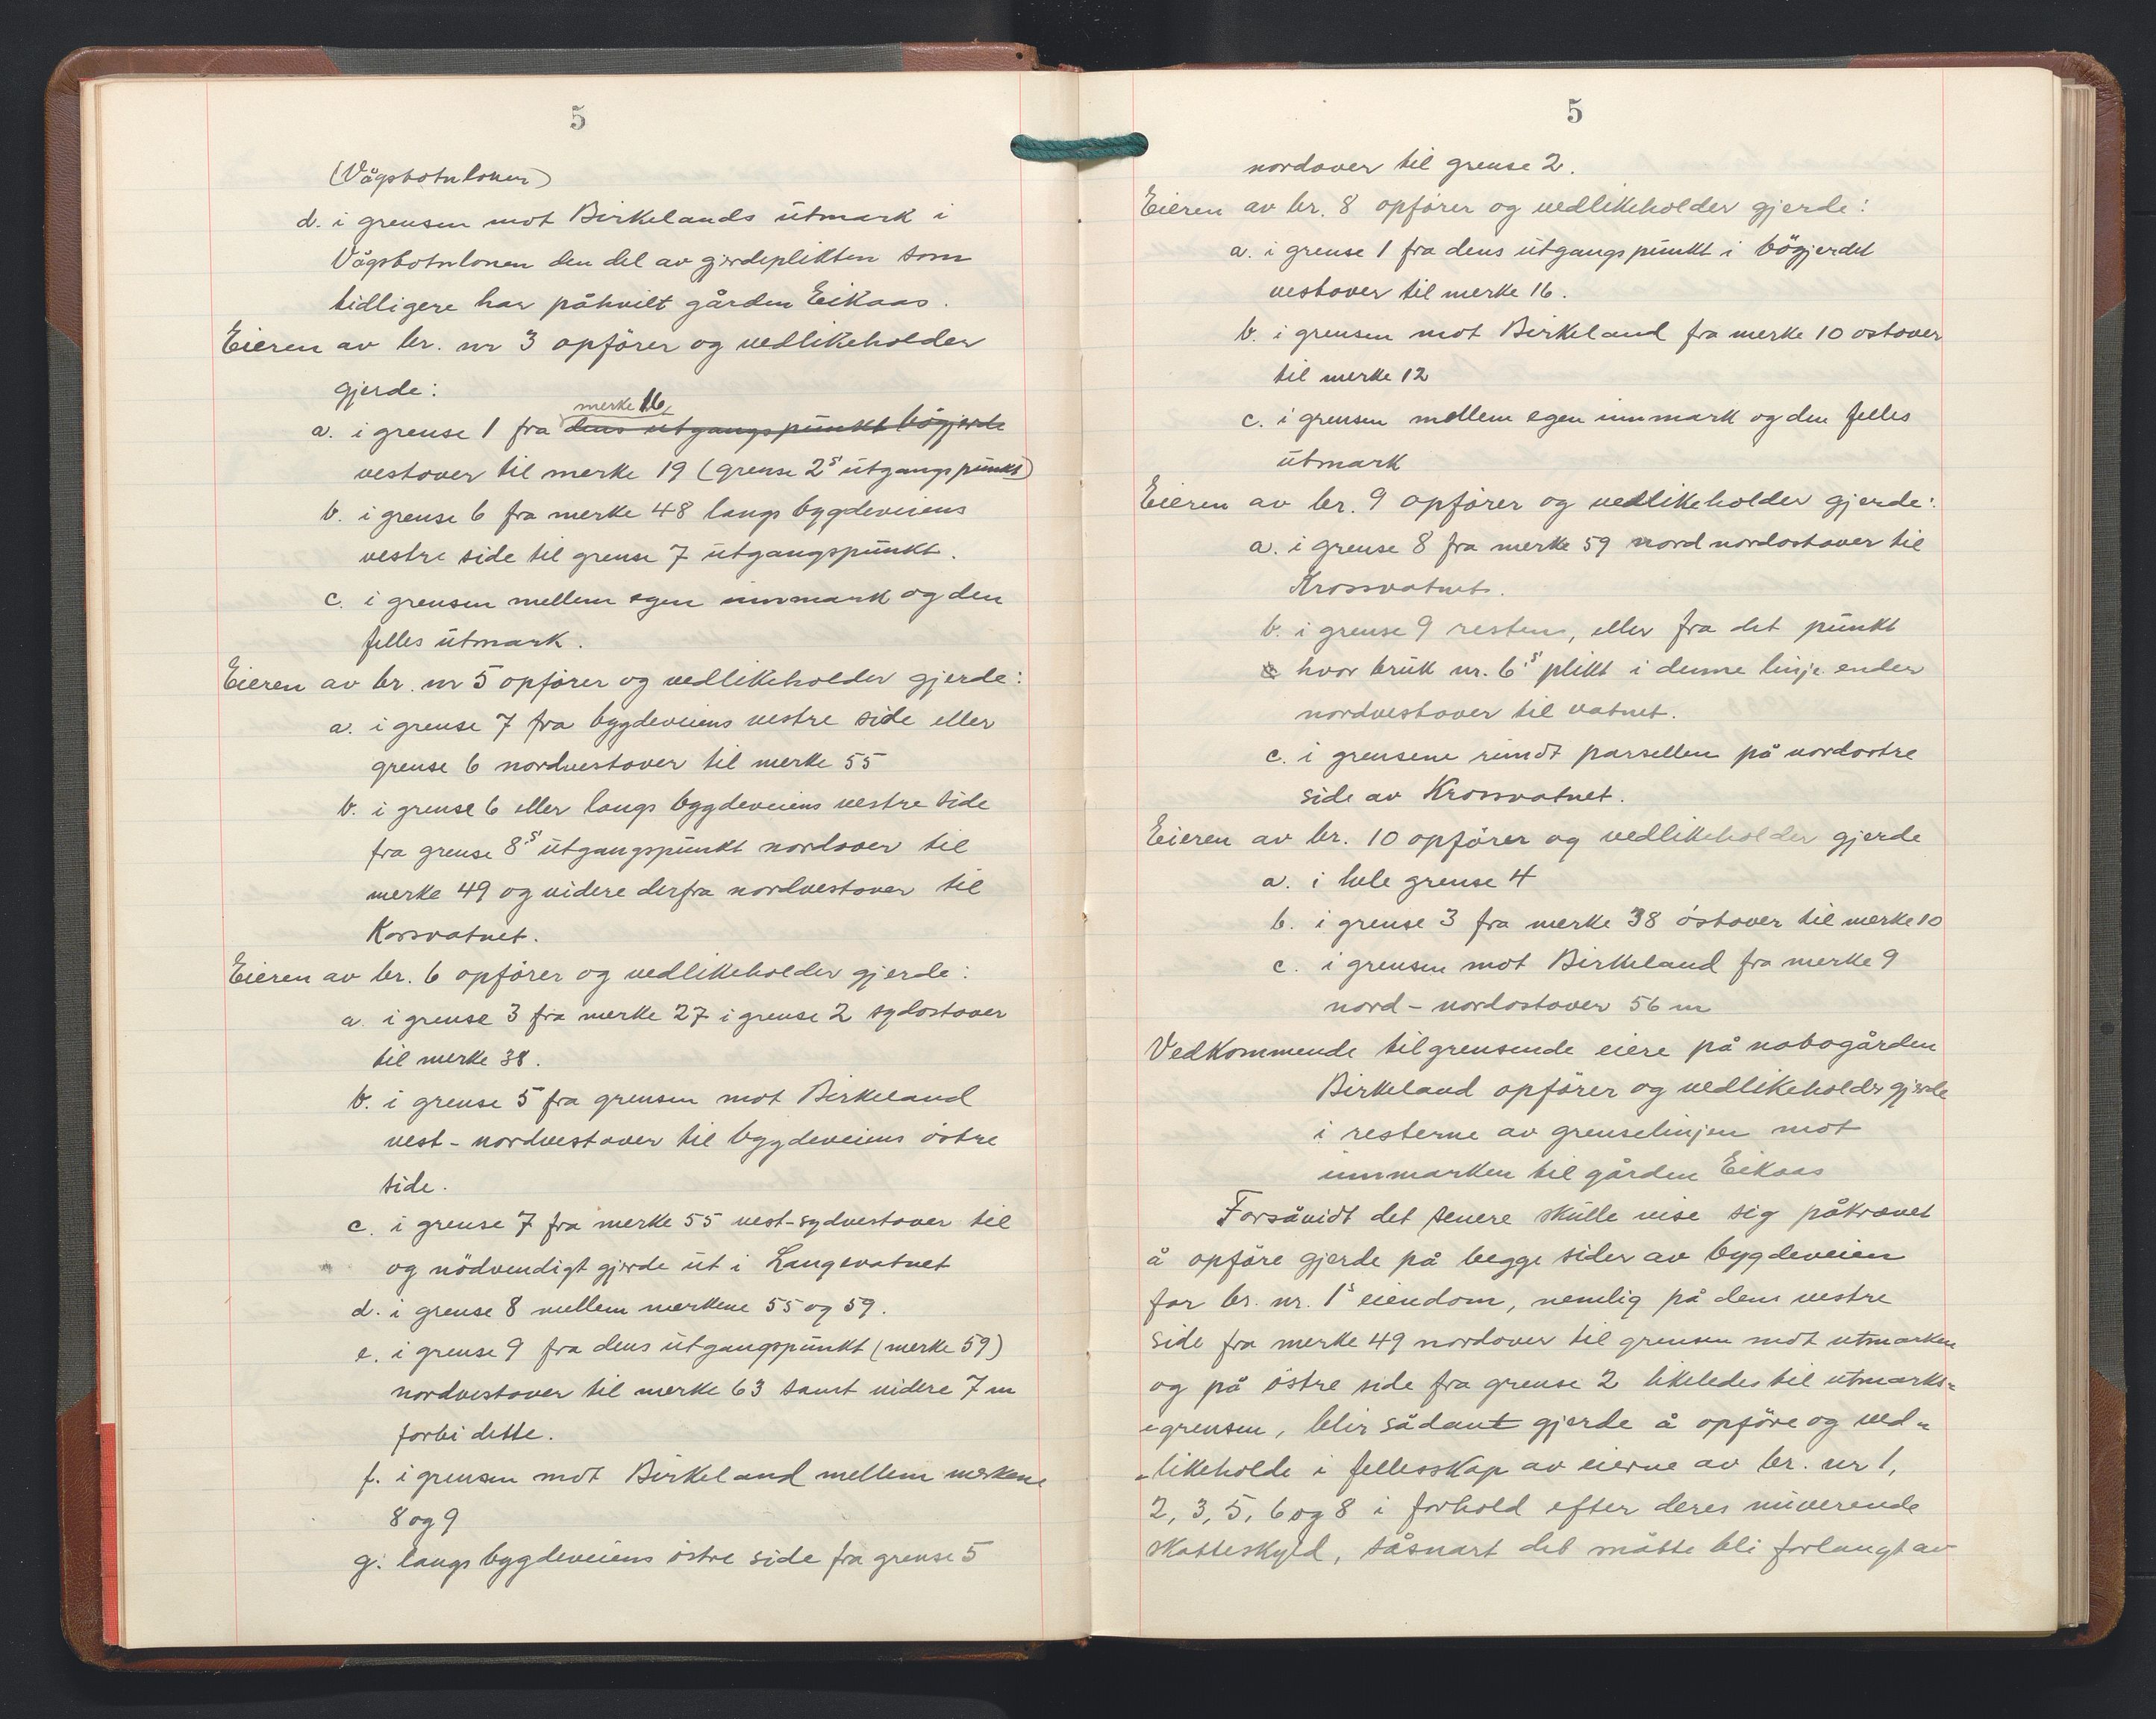 5
(Vågsbotnlonen)
d. i grensen mot Birkelands utmark i
Vågsbotnlonen den del av gjerdeplikten som
tidligere har påhvilt gården Eikaas.
Eieren av br. nr 3 opfører og vedlikeholder
gjerde:
merke 16,
a. i grense 1 fra dens utgangspunkt bögjerde
vestover til merke 19 (grense 2s utgangspunkt)
b. i grense 6 fra merke 48 langs bygdeveiens
vestre side til grense 7 utgangspunkt.
c. i grensen mellem egen innmark og den
felles utmark.
Eieren av br. nr 5 opfører og vedlikeholder gjerde:
a. i grense 7 fra bygdeveiens vestre side eller
grense 6 nordvestover til merke 55
b. i grense 6 eller langs bygdeveiens vestre side
fra grense 8s utgangspunkt nordover til
merke 49 og videre derfra nordvestover til
Korsvatnet.
Eieren av br. 6 opfører og vedlikeholder gjerde:
a. i grense 3 fra merke 27 i grense 2 sydostover
til merke 38.
b. i grense 5 fra grensen mot Birkeland
vest-nordvestover til bygdeveiens östre
side.
c. i grense 7 fra merke 55 vest-sydvestover til
og nödvendigt gjerde ut i Langevatnet
d. i grense 8 mellem merkene 55 og 59.
e. i grense 9 fra dens utgangspunkt (merke 59)
nordvestover til merke 63 samt videre 7 m
forbi dette.
f. i grensen mot Birkeland mellem merkene
8 og 9
g. langs bygdeveiens östre side fra grense 5
5
nordover til grense 2.
Eieren av br. 8 opfører og vedlikeholder gjerde:
a. i grense 1 fra dens utgangspunkt i bögjerdet
vestover til merke 16.
b. i grensen mot Birkeland fra merke 10 ostover
til merke 12
c. i grensen mellem egen innmark og den felles
utmark
Eieren av br. 9 opfører og vedlikeholder gjerde:
a. i grense 8 fra merke 59 nord nordostover til
Krossvatnet.
b. i grense 9 resten, eller fra det punkt
hvor bruk nr. 6s plikt i denne linje ender
nordvestover til vatnet.
c. i grensene rundt parsellen på nordostre
side av Krossvatnet.
Eieren av br. 10 opfører og vedlikeholder gjerde
a. i hele grense 4
b. i grense 3 fra merke 38 östover til merke 10
c. i grensen mot Birkeland fra merke 9
nord-nordostover 56 m
Vedkommende tilgrensende eiere på nabogården
Birkeland opfører og vedlikeholder gjerde
i resterne av grenselinjen mot
innmarken til gården Eikaas
Forsåvidt det senere skulle vise sig påkrævet
å opføre gjerde på begge sider av bygdeveien
for br. nr. 1s eiendom, nemlig på dens vestre
side fra merke 49 nordover til grensen mot utmarken
og på östre side fra grense 2 likeledes til utmarks=
=grensen, blir sådant gjerde å opføre og ved=
=likeholde i fellesskap av eierne av br. nr 1,
2, 3, 5, 6 og 8 i forhold efter deres nuverende
skatteskyld, såsnart det måtte bli forlangt av